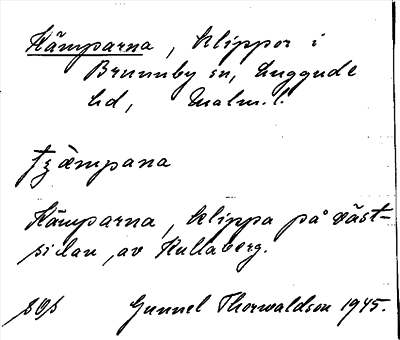 Kämparna, klippor i
Brunnby sn, Luggude
hd, Malm. l.
tʒæmpana
Kämparna, klippa på väst-
sidan av Kullaberg.
Gunnel Thorwaldson 1945.